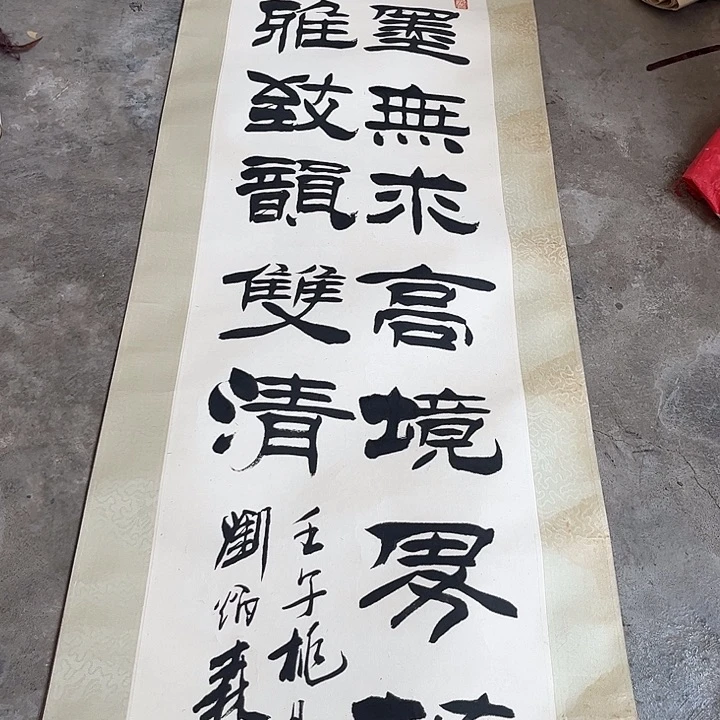 墨無求高境界
雅致韻雙清
壬午桃月
劉炳森